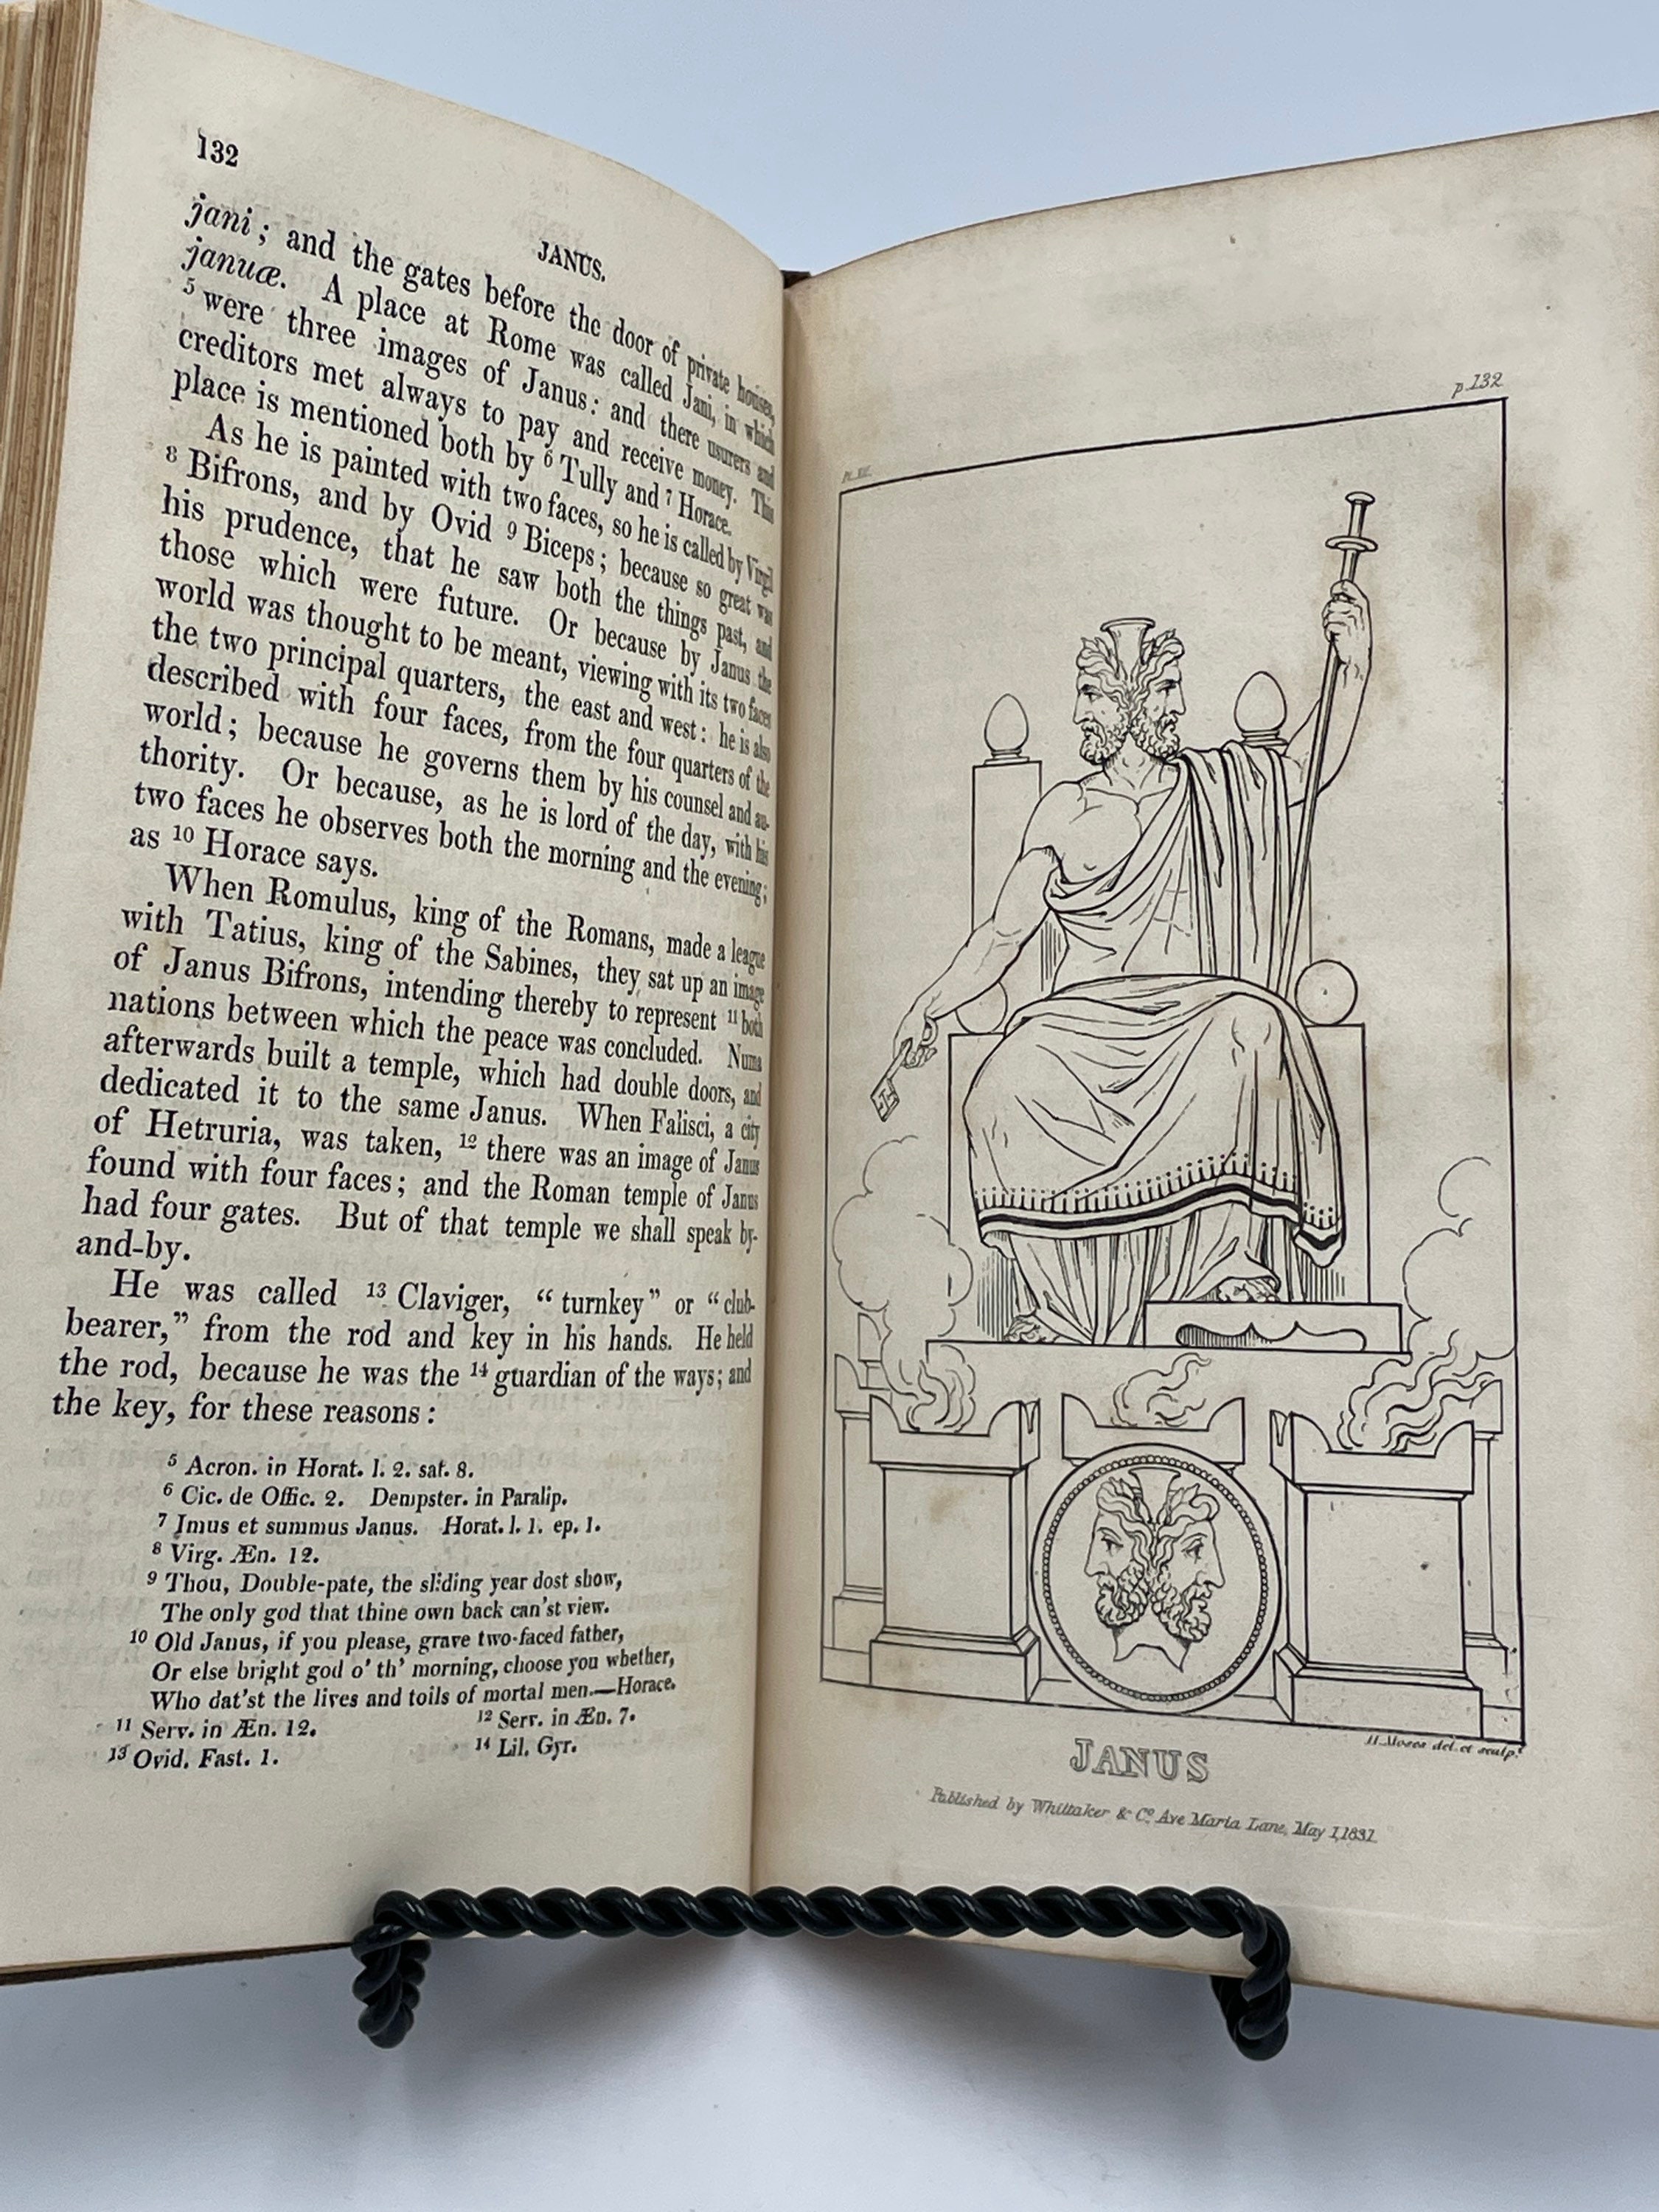 132
JANUS.
jani; and the gates before the door of private houses,
januæ. A place at Rome was called Jani, in which
⁵ were three images of Janus: and there usurers and
creditors met always to pay and receive money. This
place is mentioned both by ⁶ Tully and ⁷ Horace.
As he is painted with two faces, so he is called by Virgil
⁸ Bifrons, and by Ovid ⁹ Biceps; because so great was
his prudence, that he saw both the things past, and
those which were future. Or because by Janus the
world was thought to be meant, viewing with its two faces
the two principal quarters, the east and west: he is also
described with four faces, from the four quarters of the
world; because he governs them by his counsel and au-
thority. Or because, as he is lord of the day, with his
two faces he observes both the morning and the evening;
as ¹⁰ Horace says.
When Romulus, king of the Romans, made a league
with Tatius, king of the Sabines, they sat up an image
of Janus Bifrons, intending thereby to represent ¹¹ both
nations between which the peace was concluded. Numa
afterwards built a temple, which had double doors, and
dedicated it to the same Janus. When Falisci, a city
of Hetruria, was taken, ¹² there was an image of Janus
found with four faces; and the Roman temple of Janus
had four gates. But of that temple we shall speak by-
and-by.
He was called ¹³ Claviger, "turnkey" or "club-
bearer," from the rod and key in his hands. He held
the rod, because he was the ¹⁴ guardian of the ways; and
the key, for these reasons:
⁵ Acron. in Horat. l. 2. sat. 8.
⁶ Cic. de Offic. 2. Dempster. in Paralip.
⁷ Imus et summus Janus. Horat. l. 1. ep. 1.
⁸ Virg. Æn. 12.
⁹ Thou, Double-pate, the sliding year dost show,
The only god that thine own back can'st view.
¹⁰ Old Janus, if you please, grave two-faced father,
Or else bright god o' th' morning, choose you whether,
Who dat'st the lives and toils of mortal men.—Horace.
¹¹ Serv. in Æn. 12. ¹² Serv. in Æn. 7.
¹³ Ovid. Fast. 1. ¹⁴ Lil. Gyr.
p.132
H. Moses del. et sculp.
JANUS
Published by Whittaker & Co. Ave Maria Lane, May 1, 1831.